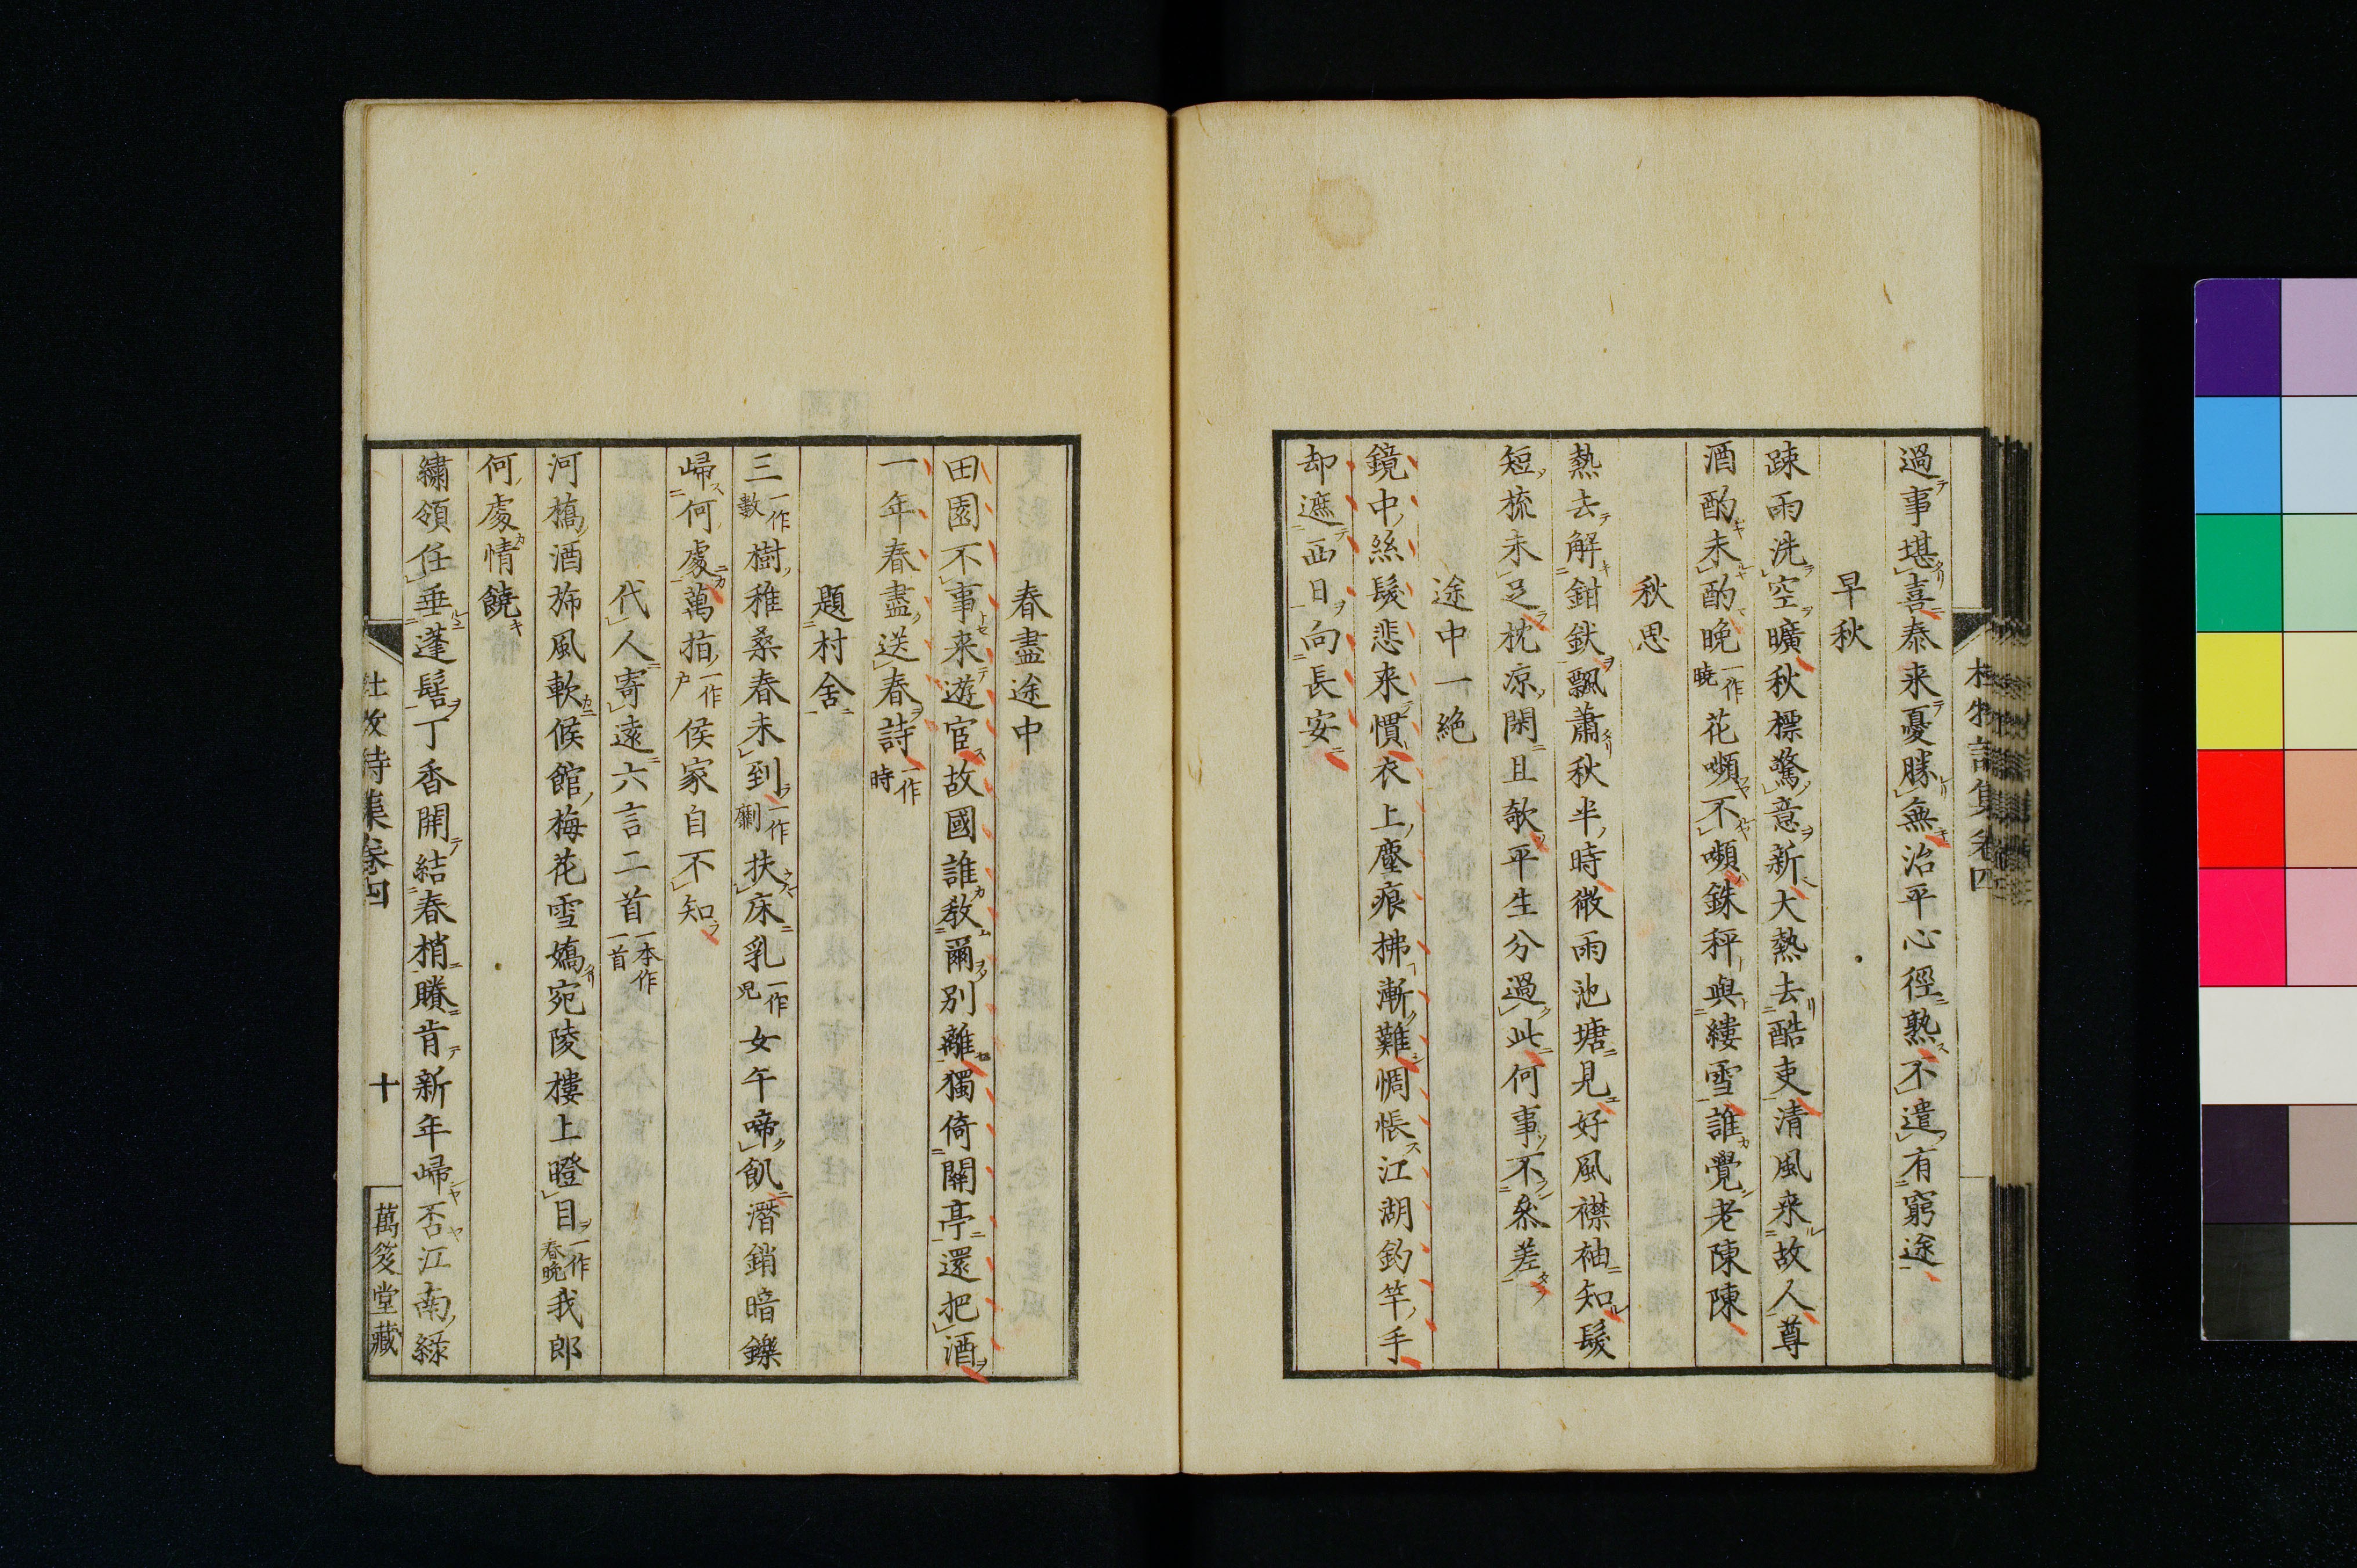 過事堪喜泰来憂勝無治平心徑熟不遣有窮途
早秋
踈雨洗空曠秋標驚意新大熱去酷吏清風来故人尊
酒酌未酌晚一作曉花嚬不嚬銖秤與縷雪誰覺老陳陳
秋思
熱去解鉗釱飄蕭秋半時微雨池塘見好風襟袖知髮
短梳未足枕凉閑且欹平生分過此何事不叅差
途中一絶
鏡中絲髮悲来慣衣上塵痕拂漸難惆悵江湖釣竿手
却遮西日向長安
杜牧詩集卷四
春盡途中
田園不事来遊宦故國誰教爾別離獨倚關亭還把酒
一年春盡送春詩一作時
題村舍
三一作數樹稚桑春未到一作劚扶床乳一作兒女午啼飢潛銷暗鑠
歸何處萬指一作戶侯家自不知
代人寄遠六言二首一本作一首
河橋酒斾風軟候館梅花雪嬌宛陵樓上瞪目一作春晚我郎
何處情饒
繡領任垂蓬髻丁香閒結春梢賸肯新年歸否江南緑
杜牧詩集卷四
十
萬笈堂藏